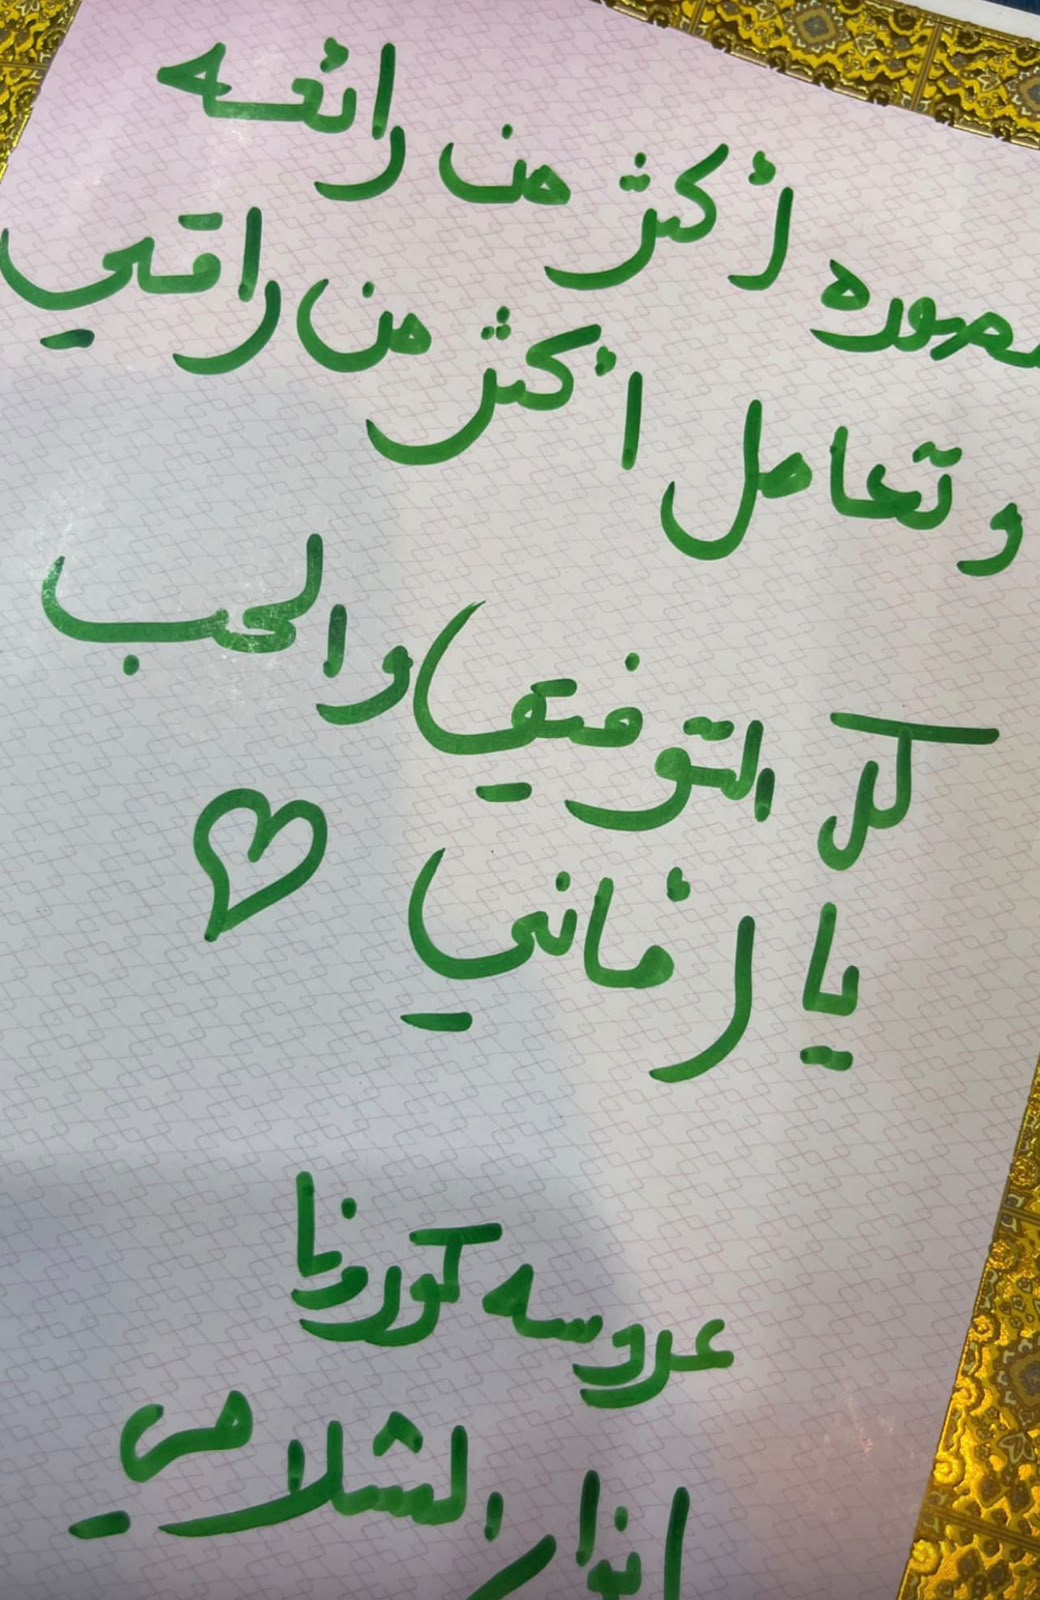 مصوره أكثر من رائعه
وتعامل اكثر من راقي
كل التوفيق والحب
يا ارماني ♡
عروسه كورونا
انوار الشلامي